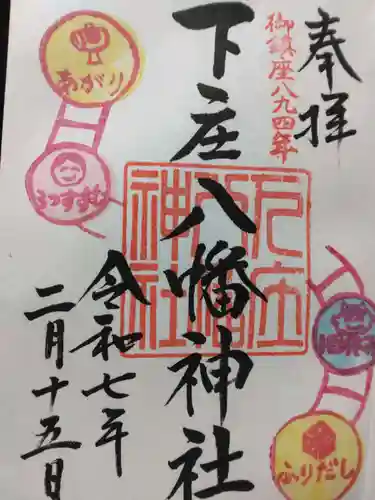 奉拝
御鎮座八九四年
下庄八幡神社
下庄八幡神社
令和七年
二月十五日
あがり
3つすすむ
1回休み
ふりだし